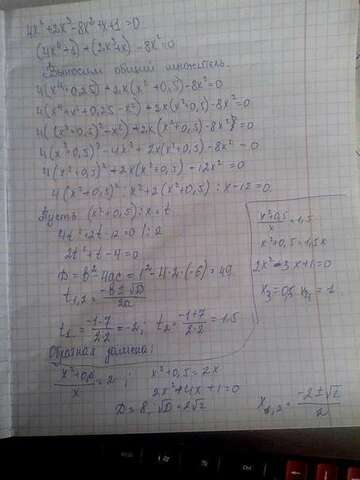 4x⁴+2x³-8x²+x+1=0
(4x⁴+1)+(2x³+x)-8x²=0
Выносим общий множитель.
4(x⁴+0,25)+2x(x²+0,5)-8x²=0
4(x⁴+x²+0,25-x²)+2x(x²+0,5)-8x²=0
4((x²+0,5)²-x²)+2x(x²+0,5)-8x²=0
4(x²+0,5)²-4x²+2x(x²+0,5)-8x²=0
4(x²+0,5)²+2x(x²+0,5)-12x²=0
4(x²+0,5)²:x²+2(x²+0,5):x-12=0
Пусть (x²+0,5):x=t
4t²+2t-12=0 /:2
2t²+t-6=0
D=b²-4ac=1²-4·2·(-6)=49
t₁,₂=(-b±√D)/2a
t₁=(-1-7)/2·2=-2; t₂=(-1+7)/2·2=1.5
Обратная замена:
(x²+0,5)/x=2; x²+0,5=2x
2x²+4x+1=0
D=8 √D=2√2
x₁,₂=(-2±√2)/2
(x²+0,5)/x=1,5
x²+0,5=1,5x
2x²-3x+1=0
x₃=0,5 x₄=1